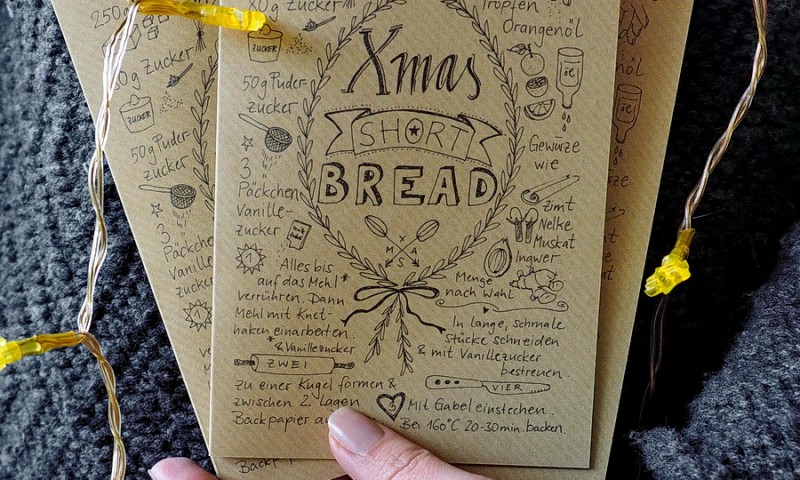 Zucker
ZUCKER
50g Puder-
zucker
3
Päckchen
Vanille-
zucker
1
Alles bis
auf das Mehl *
verrühren. Dann
Mehl mit Knet-
haken einarbeiten.
* & Vanillezucker
ZWEI
zu einer Kugel formen &
zwischen 2 Lagen
Backpapier
Xmas
SHORT
BREAD
X
M A
S
Tropfen
Orangenöl
öl
Gewürze
wie
Zimt
Nelke
Muskat
Ingwer
Menge
nach Wahl
In lange, schmale
Stücke schneiden
& mit Vanillezucker
bestreuen.
VIER
Mit Gabel einstechen.
Bei 160°C 20-30min. backen.
250g
Zucker
ZUCKER
50g Puder-
zucker
3
Päckchen
Vanille-
zucker
1
Backp